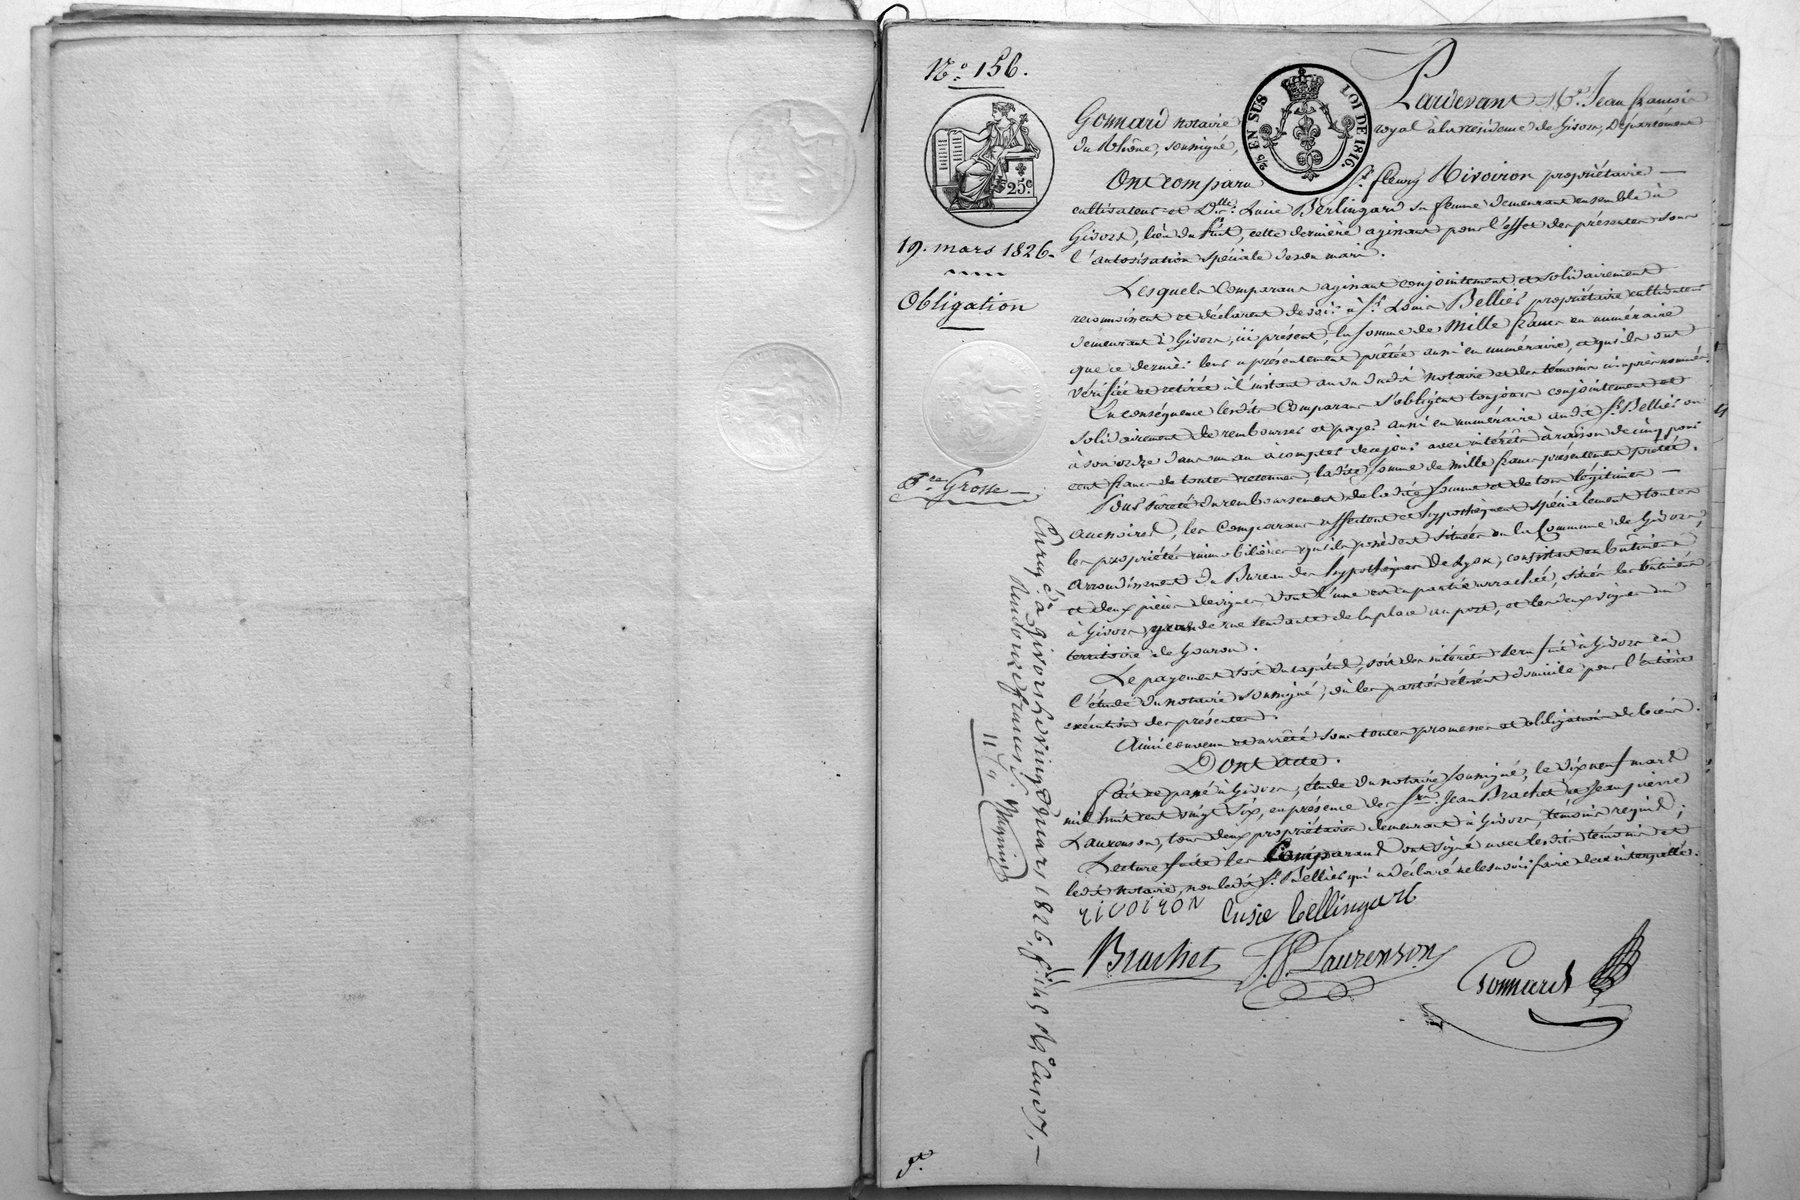 N.o 156.
25c
19. mars 1826.
Obligation
1.re Grosse
2/5 EN SUS LOI DE 1816.
Pardevant Me. Jean françois
Gonnard notaire royal à la résidence de Givors, Département
du Rhône, soussigné,
Ont comparu Sr. fleury Rivoiron propriétaire
cultivateur et D.lle Lucie Berlingard sa femme demeurant ensemble à
Givors, lieu du fut, cette dernière agissant pour l'effet des présentes sous
l'autorisation spéciale de son mari.
Lesquels Comparans agissant conjointement et solidairement
reconnoissent et déclarent devoir à Sr. Louis Bellier propriétaire cultivateur
demeurant à Givors, ici présent, la somme de Mille francs en numéraire
que ce dernier leur a présentement prêtée aussi en numéraire, et qu'ils ont
vérifiée et retirée à l'instant au vu dudit notaire et des témoins ci-après nommés
En conséquence lesdits Comparans s'obligent toujours conjointement et
solidairement de rembourser et payer aussi en numéraire audit Sr. Bellier ou
à son ordre dans un an à compter de ce jour avec intérêts à raison de cinq pour
cent francs de toutes retenues, ladite somme de mille francs présentement prêtée.
Pour sûreté du remboursement de ladite somme et de tous légitimes
accessoires, les Comparans affectent et hypothèquent spécialement toutes
les propriétés immobilières qu'ils possèdent situées en la Commune de Givors,
arrondissement du Bureau des hypothèques de Lyon, consistant en bâtimens
et deux pièces de vignes, dont l'une est en partie arrachée, situés les bâtimens
à Givors grande rue tendante de la place au port, et les deux vignes au
territoire de Gouron.
Le payement soit du capital, soit des intérêts sera fait à Givors en
l'étude du notaire soussigné, où les parties élisent domicile pour l'entière
exécution des présentes.
Ainsi convenu et arrêté sous toutes promesses et obligations de biens.
Dont acte.
Fait et passé à Givors, étude du notaire soussigné, le dix neuf mars
mil huit cent vingt six, en présence de Srs. Jean Brachet et Jean pierre
Laurenson, tous deux propriétaires demeurant à Givors, témoins requis;
Lecture faite les Comparans ont signé avec lesdits témoins et
ledit notaire, non ledit Sr. Bellier qui a déclaré ne le savoir faire de ce interpellé.
RIVOIRON lusie bellingard
Brachet J.P. Laurenson
Gonnard
Enregé. à Givors le vingt mars 1826, fo.
Reçu onze francs
11